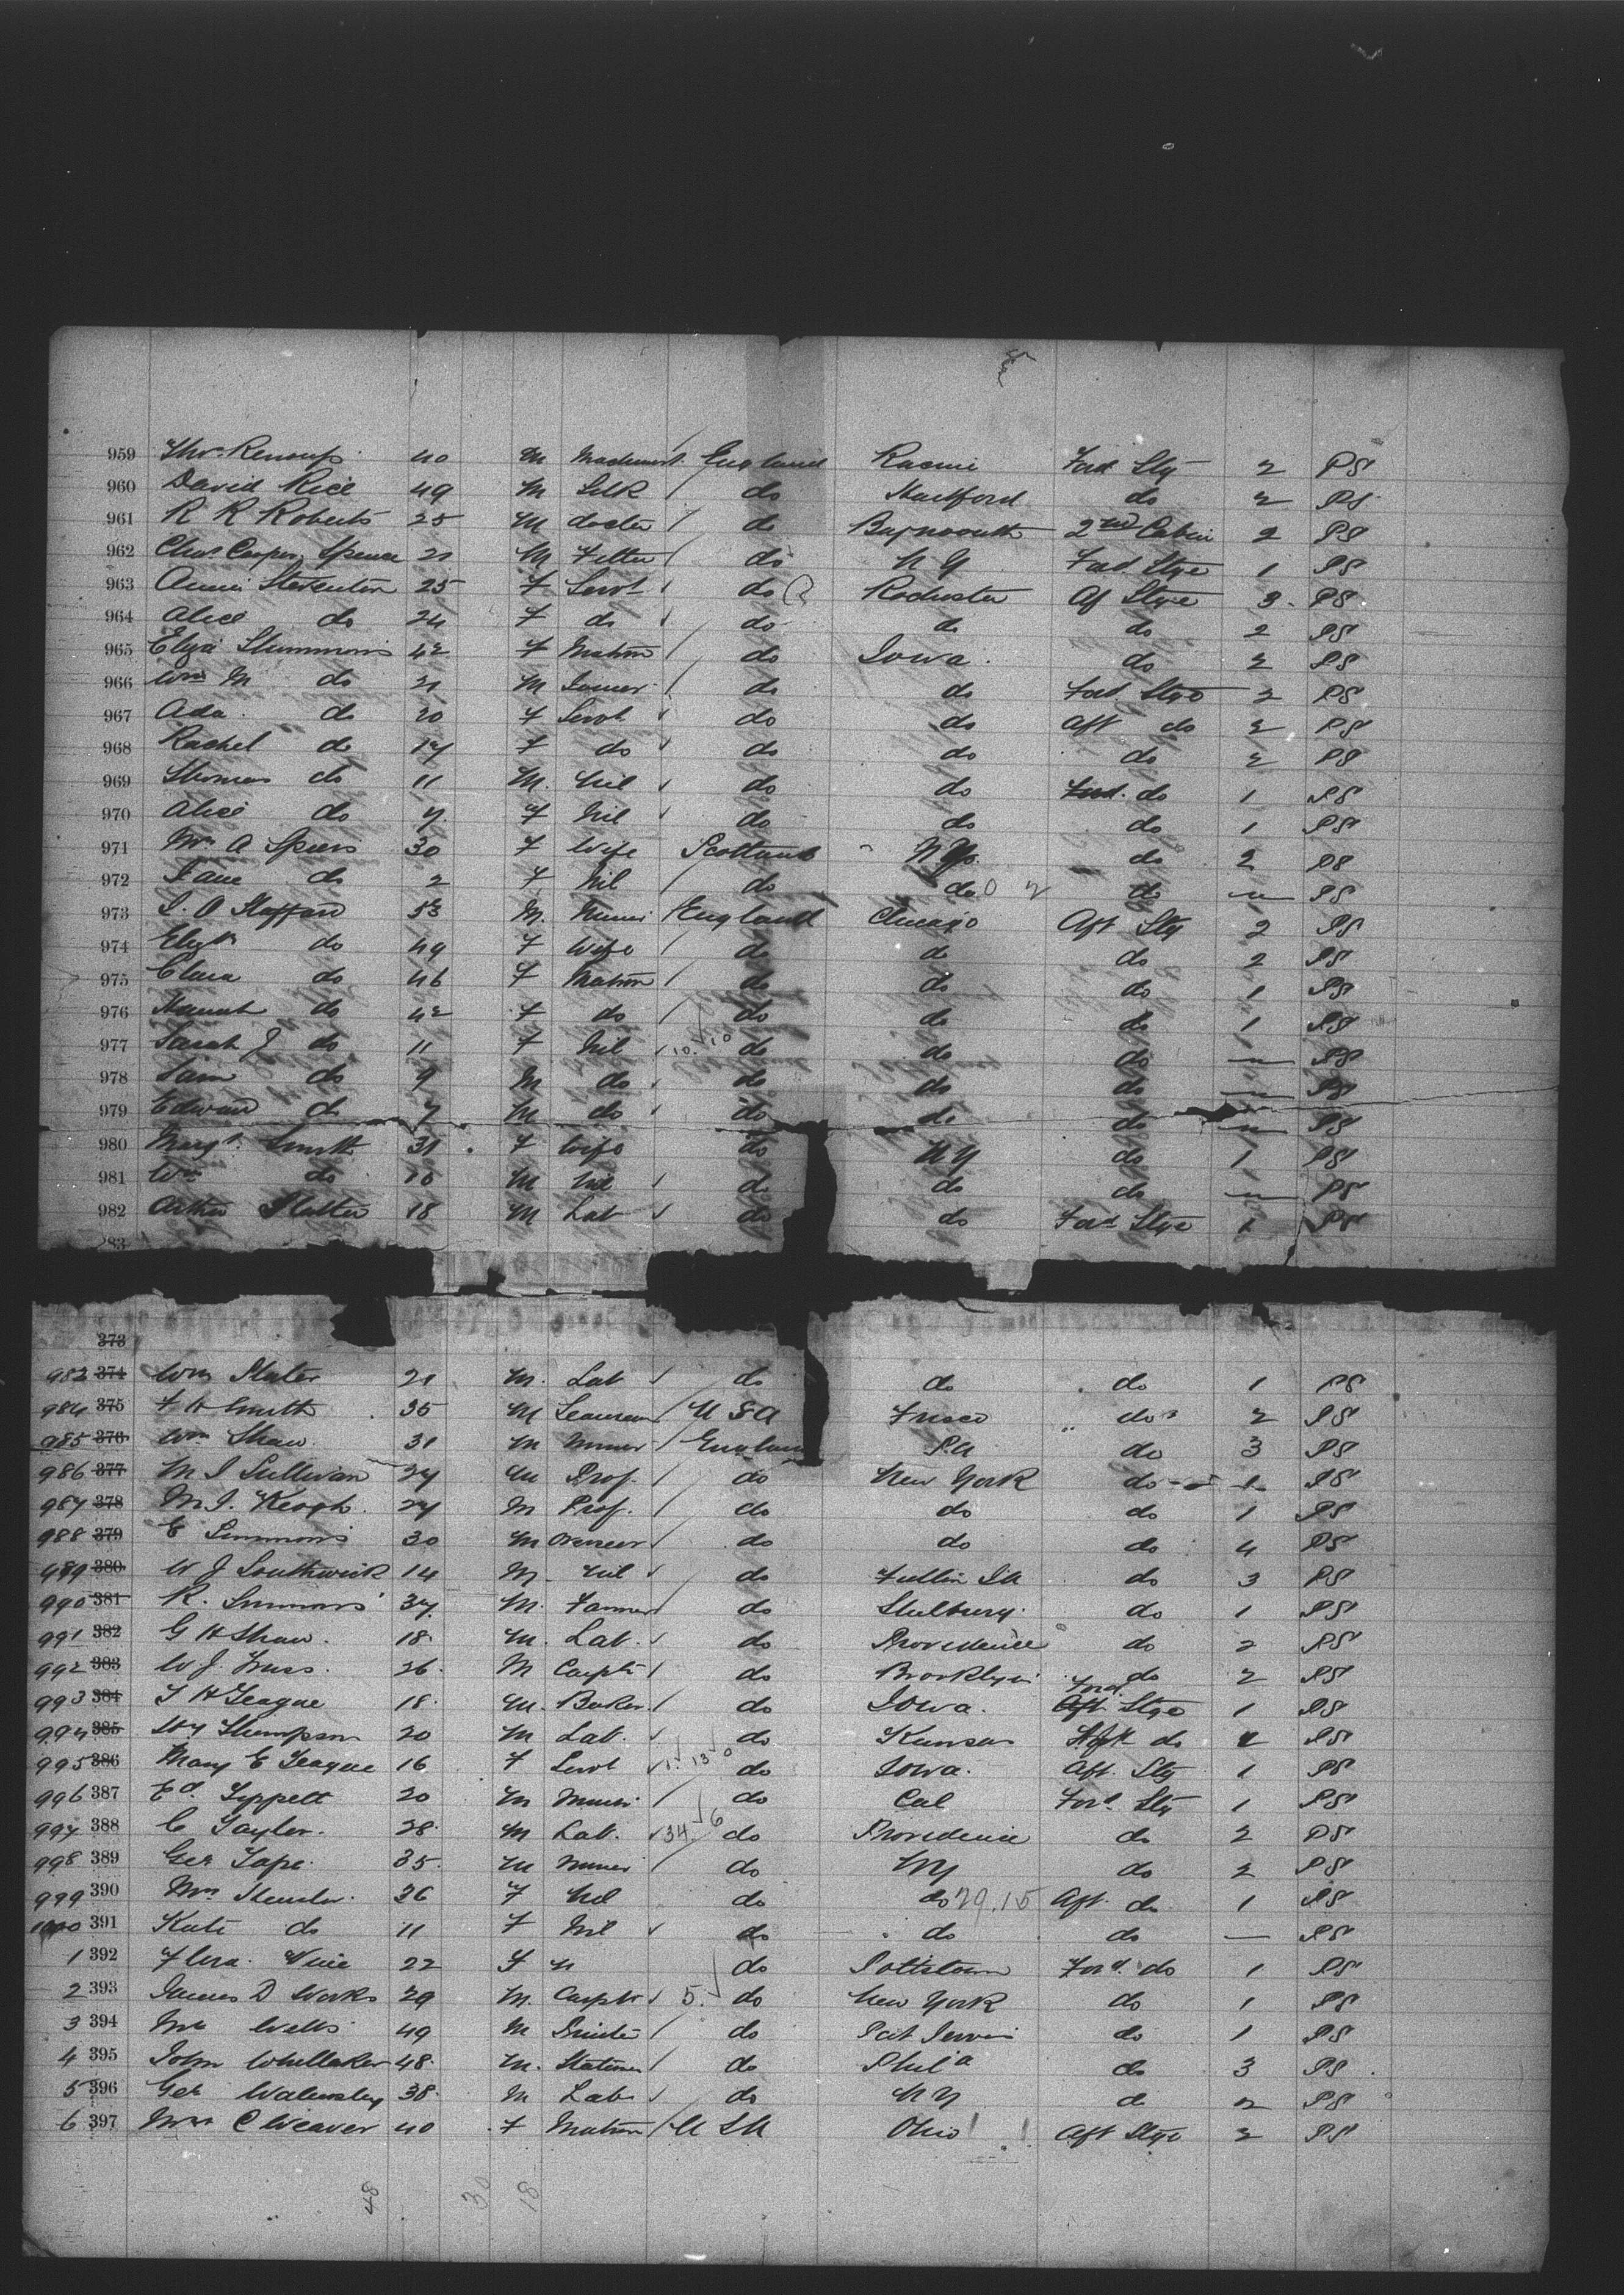 959 Thos Renoup 40 M Machinist England Racine Ford Stg 2 PS
960 David Rice 49 M Silk do Hartford do 2 PS
961 R R Roberts 25 M doctor do 2nd Cabin 2 PS
962 Chas Cooper Spence 21 M Fitter do N Y Ford Stge 1 PS
963 Annie Steventon 25 F Servt do Rochester Af Stge 3 PS
964 Alice do 24 F do do do do 2 PS
965 Eliza Slummons 42 F Matron do Iowa do 2 PS
966 Wm M do 21 M do do Ford Stge 2 PS
967 Ada do 20 F Servt do do Aft do 2 PS
968 Rachel do 17 F do do do do 2 PS
969 Thomas do 11 M Nil do do Ford do 1 PS
970 Alice do 7 F Nil do do do 1 PS
971 Mrs A Speirs 30 F Wife Scotland N Y do 2 PS
972 Jane do 2 F Nil do do do — PS
973 S. A Stafford 53 M. Miner England Chicago Aft Stg 2 PS
974 Elizth do 49 F Wife do do do 2 PS
975 Clara do 46 F Matron do do do 1 PS
976 Hannah do 42 F do do do do 1 PS
977 Sarah J do 11 F Nil 10. 10 do do do — PS
978 Sam do 9 M do do do do — PS
979 Edward do 7 M do do do do — PS
980 Margt Smith 31 F Wife do N Y do 1 PS
981 Wm do 10 M Nil do do do — PS
982 Arthur Slatter 18 M Lab do do Ford Stge 1 PS
983
373
983 374 Wm Slater 21 M. Lab do do do 1 PS
984 375 F H Smith 35 M Seaman U S A Frisco do 2 PS
985 376 Wm Shaw 31 M Miner England P.A do 3 PS
986 377 M J Sullivan 27 M Prof. do New York do 1 PS
987 378 M. J. Keogh 27 M Prof. do do do 1 PS
988 379 E Simmons 30 M Overseer do do do 4 PS
989 380 W J Southwick 14 M Nil do do 3 PS
990 381 R. Simmons 37 M. Farmer do do 1 PS
991 382 G H Shaw. 18 M. Lab. do Providence do 2 PS
992 383 W J. Truss. 26 M Carptr do Brooklyn do 2 PS
993 384 T H Teague 18 M. Baker do Iowa. Ford Aft Stge 1 PS
994 385 Hy Thompson 20 M Lab. do Kansas do 2 PS
995 386 Mary E Teague 16 F Servt 1. 13 0 do Iowa. Aft. Stg 1 PS
996 387 Ed. Tippett 20 M Miner do Cal Ford Stg 1 PS
997 388 C Taylor. 28 M Lab. 34. 6 do Providence do 2 PS
998 389 Geo Tape. 35 M Miner do NY do 2 PS
999 390 Mrs 36 F Nil do do 29.15 Aft. do 1 PS
1000 391 Kate do 11 F Nil do do do — PS
1 392 Flora Vine 22 F do Pottstown Ford do 1 PS
2 393 James D Works 29 M. Carptr 5. do New York do 1 PS
3 394 Mr Wells 49 M Printer do Port Jervis do 1 PS
4 395 John Whittaker 48 M. do Phila do 3 PS
5 396 Geo Walmsley 38 M Lab do N Y do 2 PS
6 397 Mrs C Weaver 40 F Matron U S A Ohio Aft Stge 2 PS
48 30 18